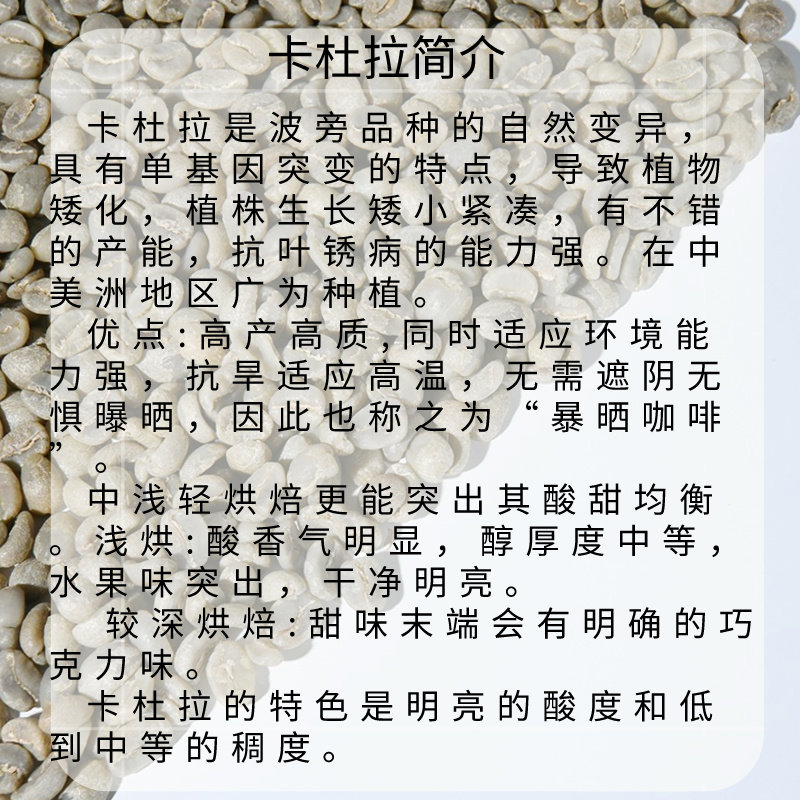 卡杜拉简介
卡杜拉是波旁品种的自然变异，
具有单基因突变的特点，导致植物
矮化，植株生长矮小紧凑，有不错
的产能，抗叶锈病的能力强。在中
美洲地区广为种植。
优点:高产高质,同时适应环境能
力强，抗旱适应高温，无需遮阴无
惧曝晒，因此也称之为“暴晒咖啡
”。
中浅轻烘焙更能突出其酸甜均衡
。浅烘:酸香气明显，醇厚度中等，
水果味突出，干净明亮。
较深烘焙:甜味末端会有明确的巧
克力味。
卡杜拉的特色是明亮的酸度和低
到中等的稠度。